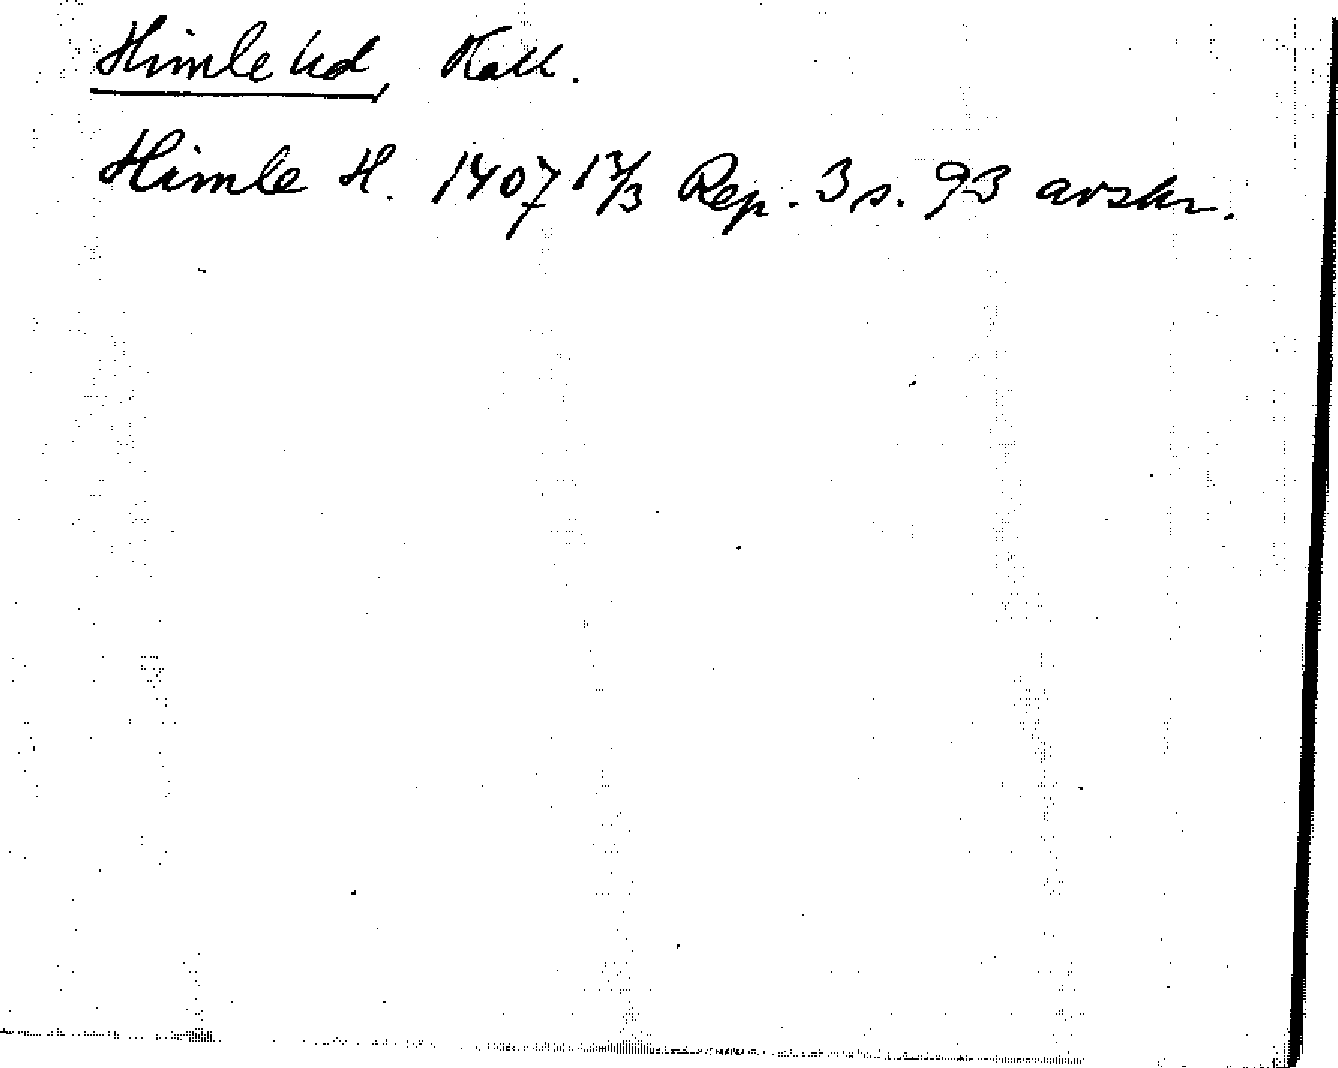 Himle hd, Hall.
Himle H. 1407 13/3 Rep. 3 s. 93 avskr.